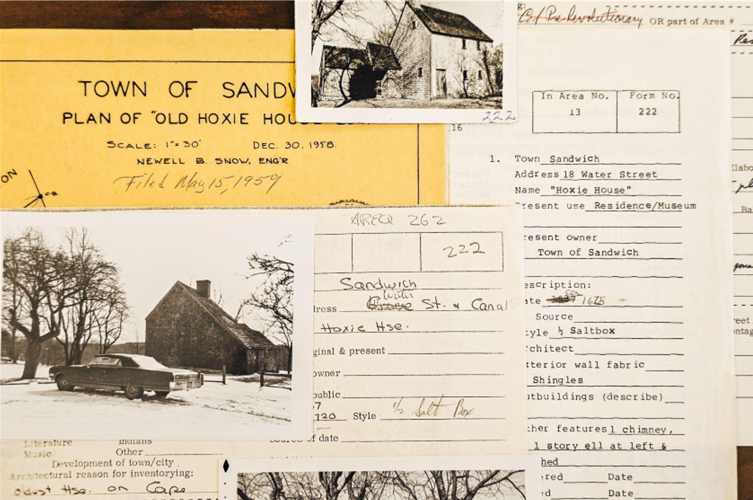 TOWN OF SANDW
PLAN OF "OLD HOXIE HOU
SCALE: 1"=30' DEC. 30, 1958.
NEWELL B. SNOW, ENG'R
Filed May 15, 1959
ON
222
Pre Revolutionary OR part of Area #
16
In Area No. Form No.
13 222
1. Town Sandwich
Address 18 Water Street
Name "Hoxie House"
resent use Residence/Museum
resent owner
Town of Sandwich
escription:
ate 1637 1675
Source
tyle ½ Saltbox
rchitect
xterior wall fabric
Shingles
utbuildings (describe)
ther features 1 chimney,
1 story ell at left &
hed
ered Date
ed Date
AREA 262
222
Sandwich
Water
dress Grove St. & Canal
Hoxie Hse.
ginal & present
owner
ublic
720 Style ½ Salt Box
Source of date
Literature Indians
Music Other
Development of town/city
Architectural reason for inventorying:
oldest Hse. on Cape
llabo
Ba
treet
ontag